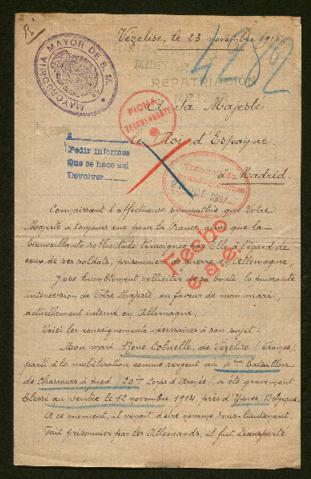 Vézelise, le 23 novembre 1916
MAYORDOMIA MAYOR DE S. M.
REPATRIACION
A Sa Majesté
FICHA
le Roi d'Espagne,
Pedir informes
Que se hace así
Devolver
Madrid
Connaissant l'affectueuse sympathie que Votre
Majesté a toujours eue pour la France, ainsi que la
bienveillante sollicitude témoignée par Elle à l'égard de
ceux de ses soldats, prisonniers de guerre en Allemagne
J'ose humblement solliciter de sa bonté, la puissante
intervention de Votre Majesté, en faveur de mon mari,
actuellement interné en Allemagne.
Voici les renseignements nécessaires à son sujet.
Mon mari, René de Vézelise, France,
parti à la mobilisation comme sergent au Bataillon
de Chasseurs à pied, 20me Corps d'Armée, a été gravement
blessé au ventre le 12 novembre 1914, près d'Ypres, Belgique.
A ce moment, il venait d'être nommé sous-lieutenant.
Fait prisonnier par les Allemands, il fut transporté